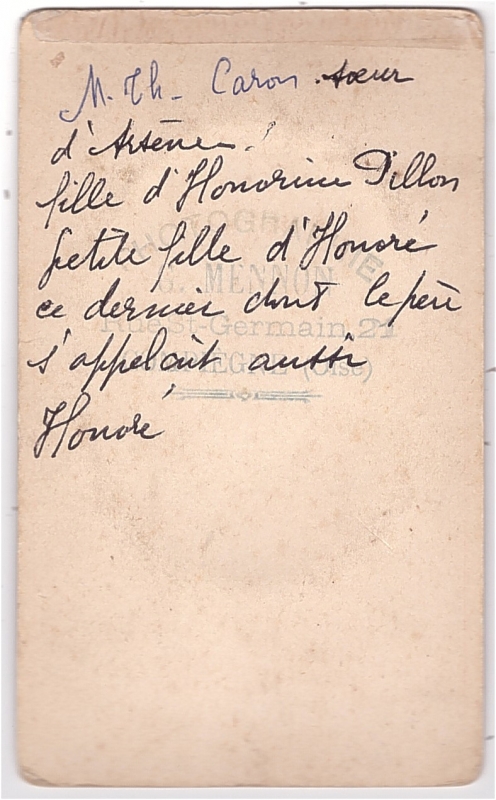 M. Th- Caron sœur
d'Arsène
fille d'Honorine Dillon
petite fille d'Honoré
ce dernier dont le père
s'appelait aussi
Honoré
PHOTOGRAPHIE
G. MENNON
Rue St-Germain, 21
COMPIEGNE (Oise)